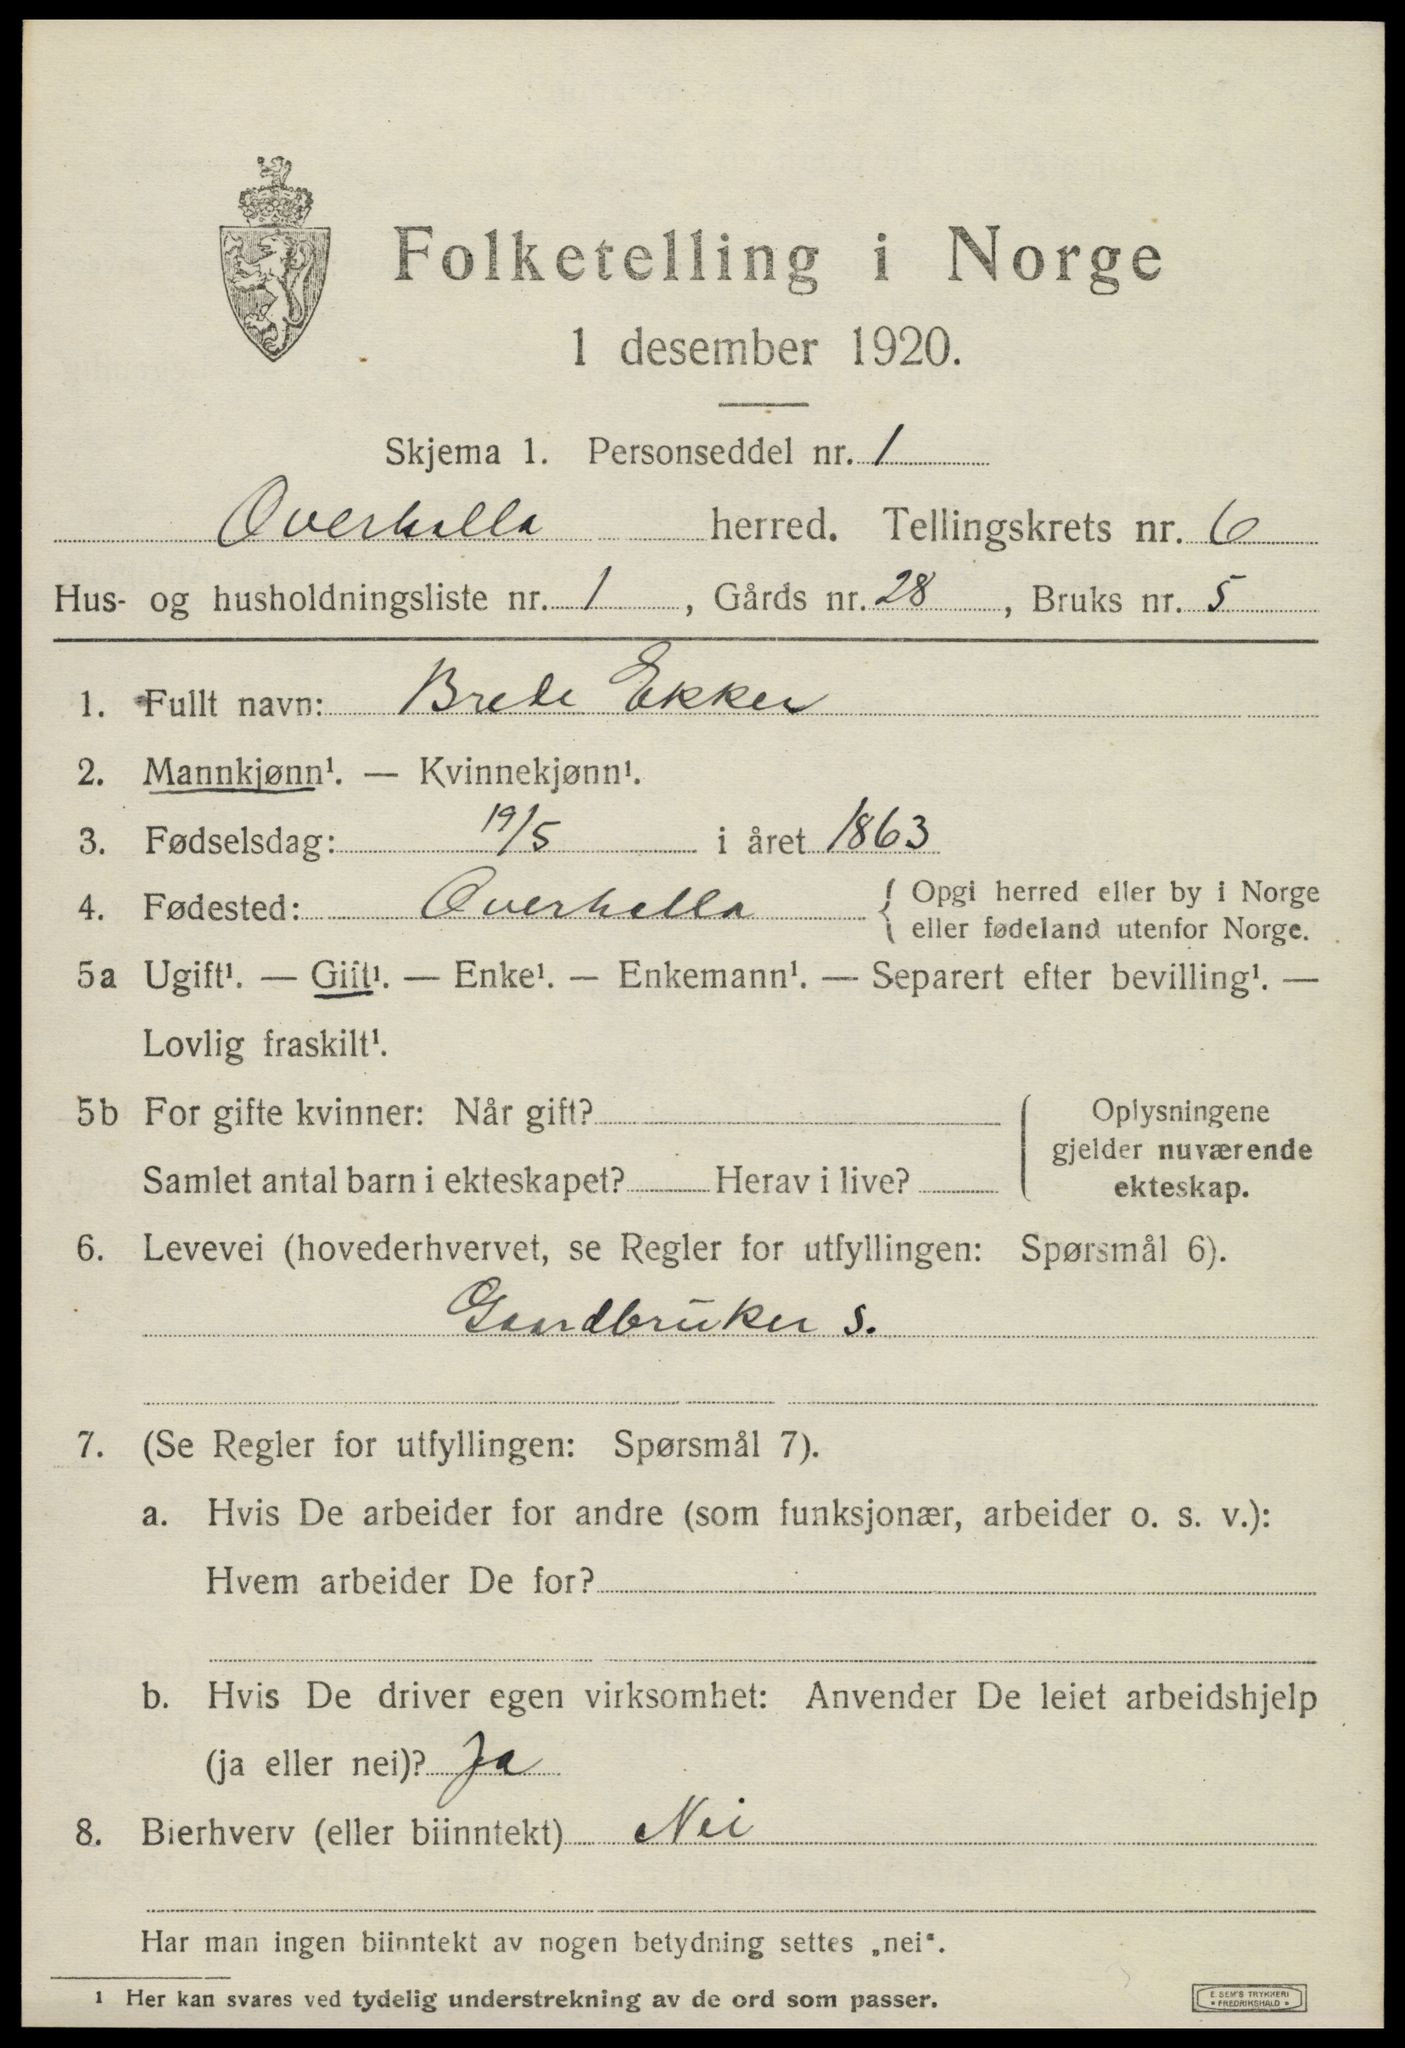 Folketelling i Norge
1 desember 1920.
Skjema 1. Personseddel nr. 1
Overhalla herred. Tellingskrets nr. 6
Hus- og husholdningsliste nr. 1, Gårds nr. 28, Bruks nr. 5
1. Fullt navn: Brede Ekker
2. Mannkjønn¹. — Kvinnekjønn¹.
3. Fødselsdag: 19/5 i året 1863
4. Fødested: Overhalla { Opgi herred eller by i Norge
eller fødeland utenfor Norge.
5a Ugift¹. — Gift¹. — Enke¹. — Enkemann¹. — Separert efter bevilling¹. —
Lovlig fraskilt¹.
5b For gifte kvinner: Når gift?
Samlet antal barn i ekteskapet? Herav i live?
Oplysningene
gjelder nuværende
ekteskap.
6. Levevei (hovederhvervet, se Regler for utfyllingen: Spørsmål 6).
Gaardbruker s.
7. (Se Regler for utfyllingen: Spørsmål 7).
a. Hvis De arbeider for andre (som funksjonær, arbeider o. s. v.):
Hvem arbeider De for?
b. Hvis De driver egen virksomhet: Anvender De leiet arbeidshjelp
(ja eller nei)? Ja
8. Bierhverv (eller biinntekt) Nei
Har man ingen biinntekt av nogen betydning settes „nei“.
¹ Her kan svares ved tydelig understrekning av de ord som passer.
E. SEM'S TRYKKERI
* FREDRIKSHALD *